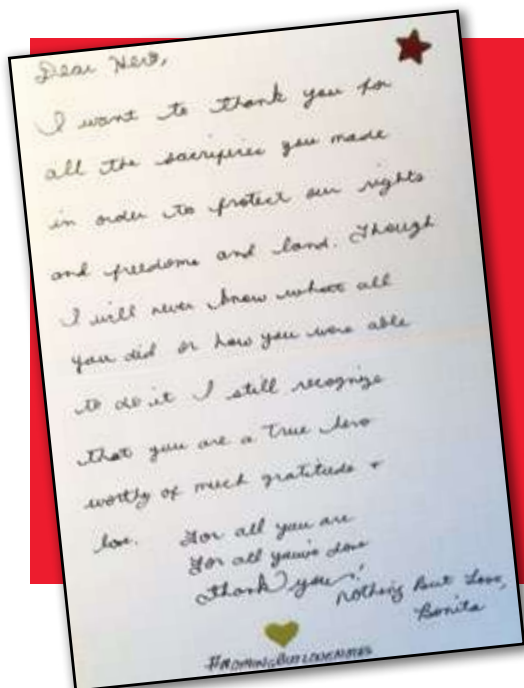 Dear Hero,
I want to thank you for
all the sacrifices you made
in order to protect our rights
and freedoms and land. Though
I will never know what all
you did or how you were able
to do it I still recognize
that you are a True hero
worthy of much gratitude +
love. For all you are
For all you've done
thank you!
Nothing But Love,
Bonita
#NOTHINGBUTLOVENOTES